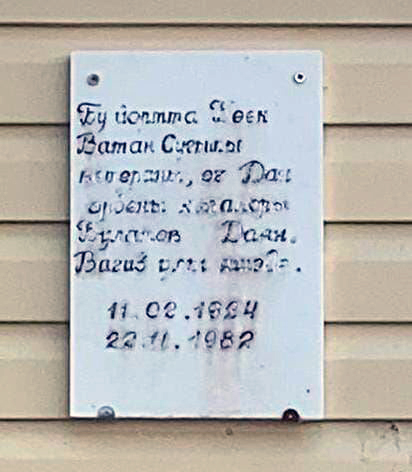 Бу йортта Бөек
Ватан Сугышы
ветераны, өч Дан
ордены кавалеры
Булатов Даян
Вагиз улы яшәде.
11.02.1924
22.11.1982